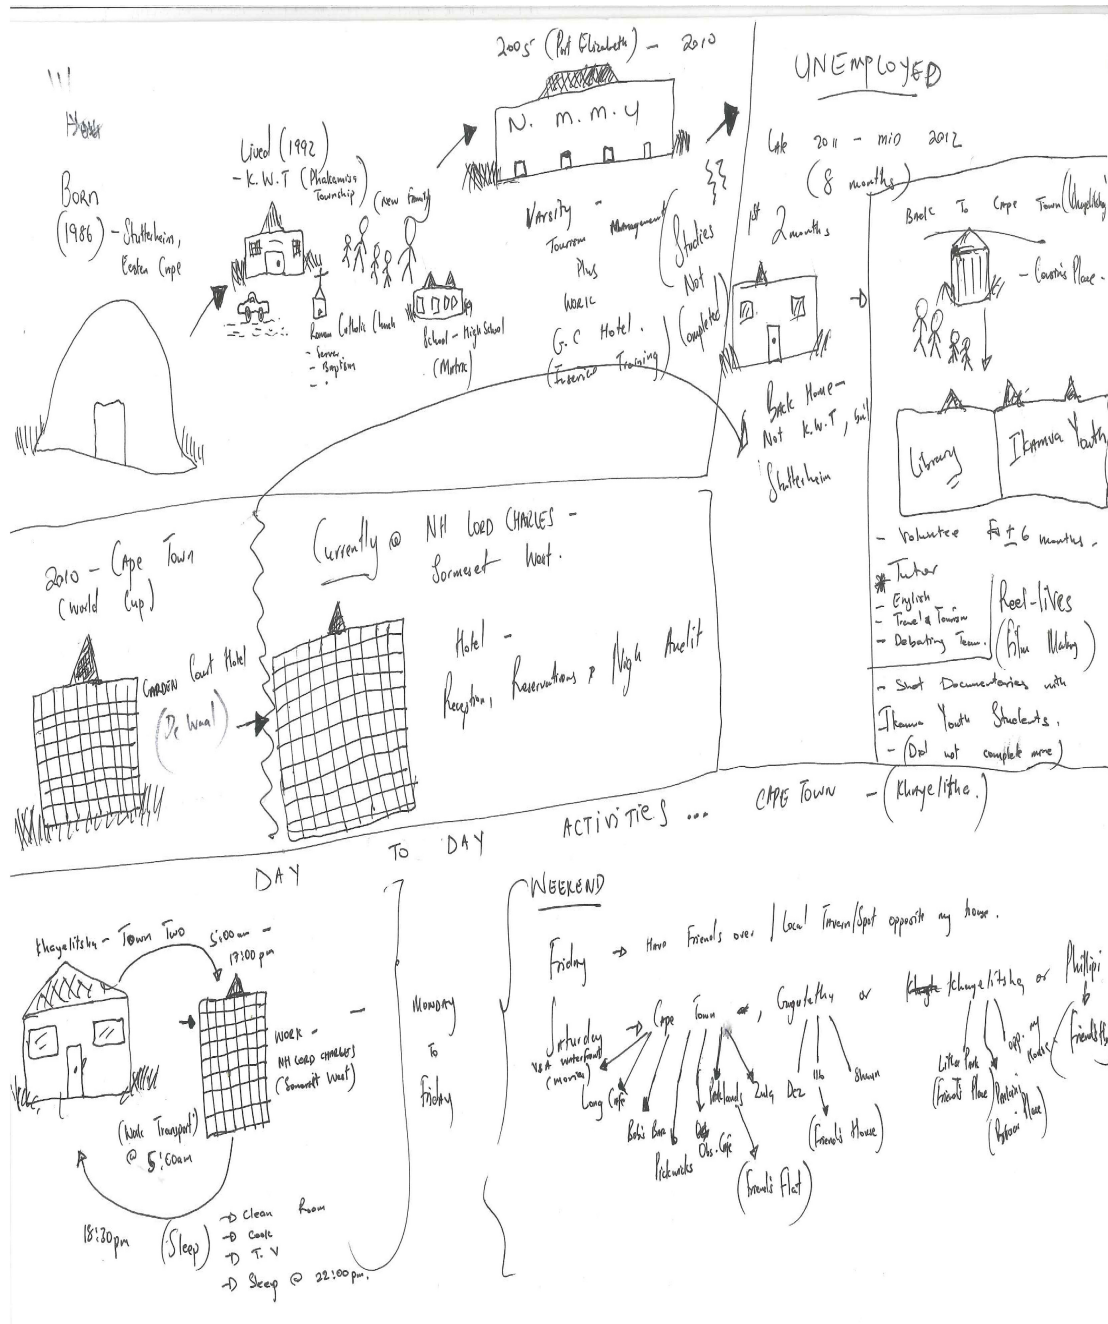 Born
(1986) - Stutterheim,
Eastern Cape
Lived (1992)
- K.W.T (Phakamisa
Township)
(New Family)
Roman Catholic Church
- Server
- Baptism
School - High School
(Matric)
2005 (Port Elizabeth) - 2010
N. M. M. U
Varsity -
Tourism Management
Plus
Work
G.C Hotel.
(Inservice Training)
(Studies
Not
Completed)
UNEMPLOYED
Late 2011 - mid 2012
(8 months)
1st 2 months
Back Home -
Not K.W.T, but
Stutterheim
Back To Cape Town
- Cousin's Place -
Library
Ikamva Youth
- Volunteer for ± 6 months.
Tutor
- English
- Travel & Tourism
- Debating Team.
Reel-lives
(Film Making)
- Shot Documentaries with
Ikamva Youth Students.
- (Did not complete mine)
2010 - Cape Town
(World Cup)
GARDEN Court Hotel
(De Waal)
Currently @ NH LORD CHARLES -
Somerset West.
Hotel -
Reception, Reservations & Nigh Audit
DAY TO DAY ACTIVITIES ... CAPE TOWN - (Khayelitsha.)
Khayelitsha - Town Two
5:00am -
17:00pm
WORK -
NH LORD CHARLES
(Somerset West)
(Work Transport)
@ 5:00am
18:30pm
(Sleep)
→ Clean Room
→ Cook
→ T.V
→ Sleep @ 22:00pm.
MONDAY
To
Friday
WEEKEND
Friday → Have Friends over / Local Tavern/Spot opposite my house.
Saturday → Cape Town, Gugulethu or Khayelitsha or Phillipi
V&A Waterfront
(movies)
Long Cafe
Bob's Bar
Pickwicks
Obs. Cafe
Parklands
(Friend's Flat)
Zula
Dez
(Friend's House)
Litha Park
(Friend's Place)
opp. my house